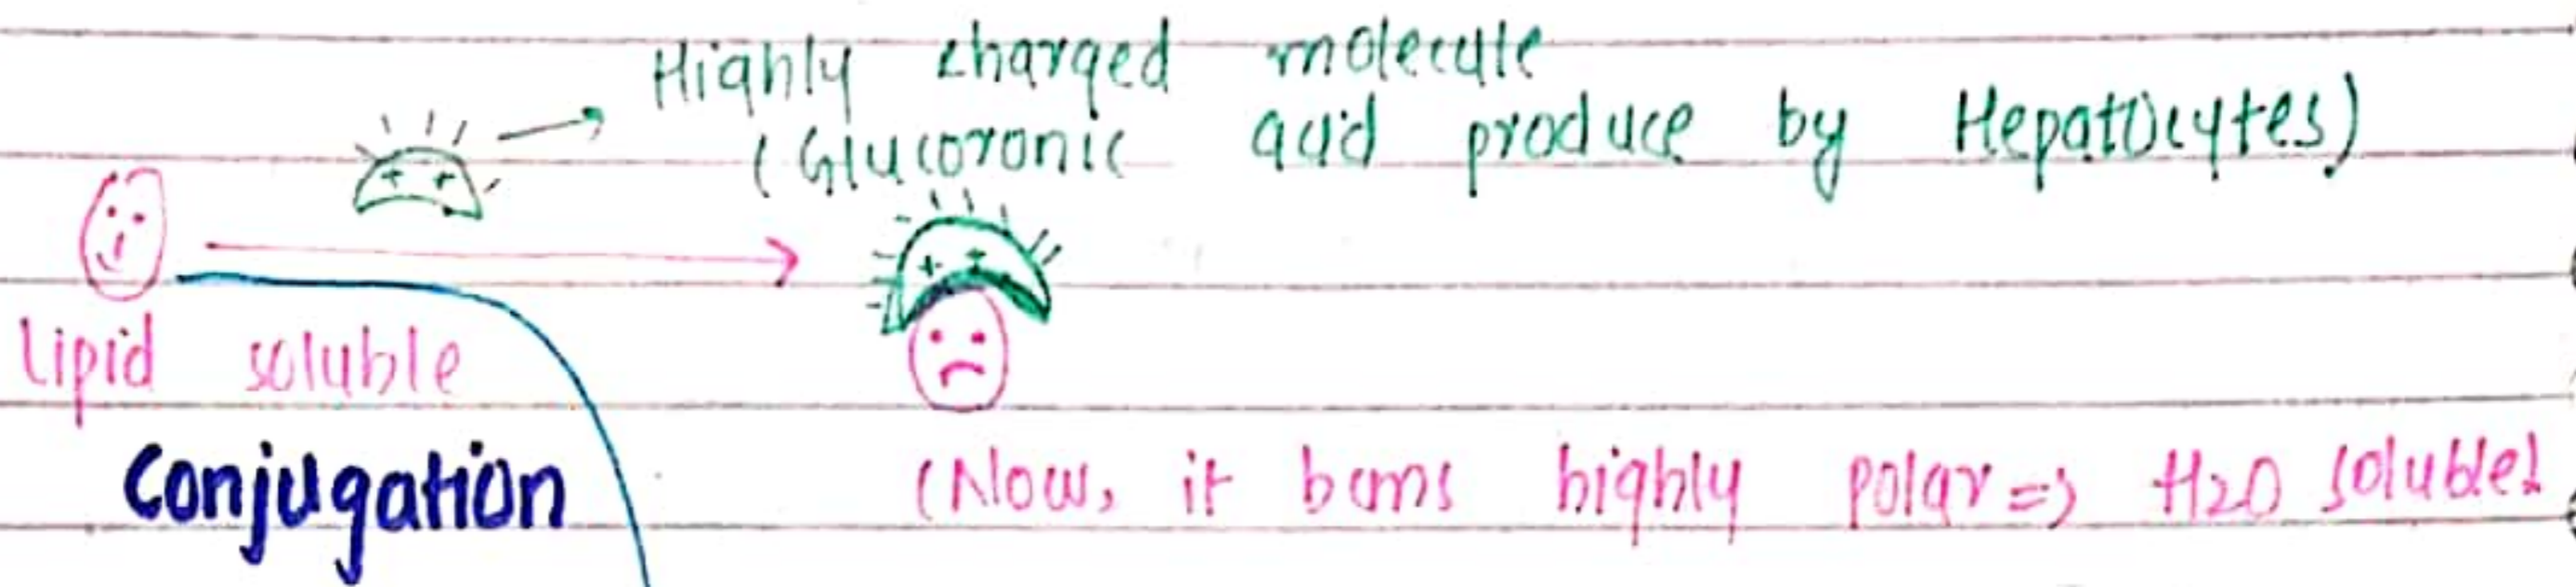 Highly charged molecule
(Glucoronic acid produce by Hepatocytes)
lipid soluble
Conjugation
(Now, it bcms highly polar => H2O soluble)